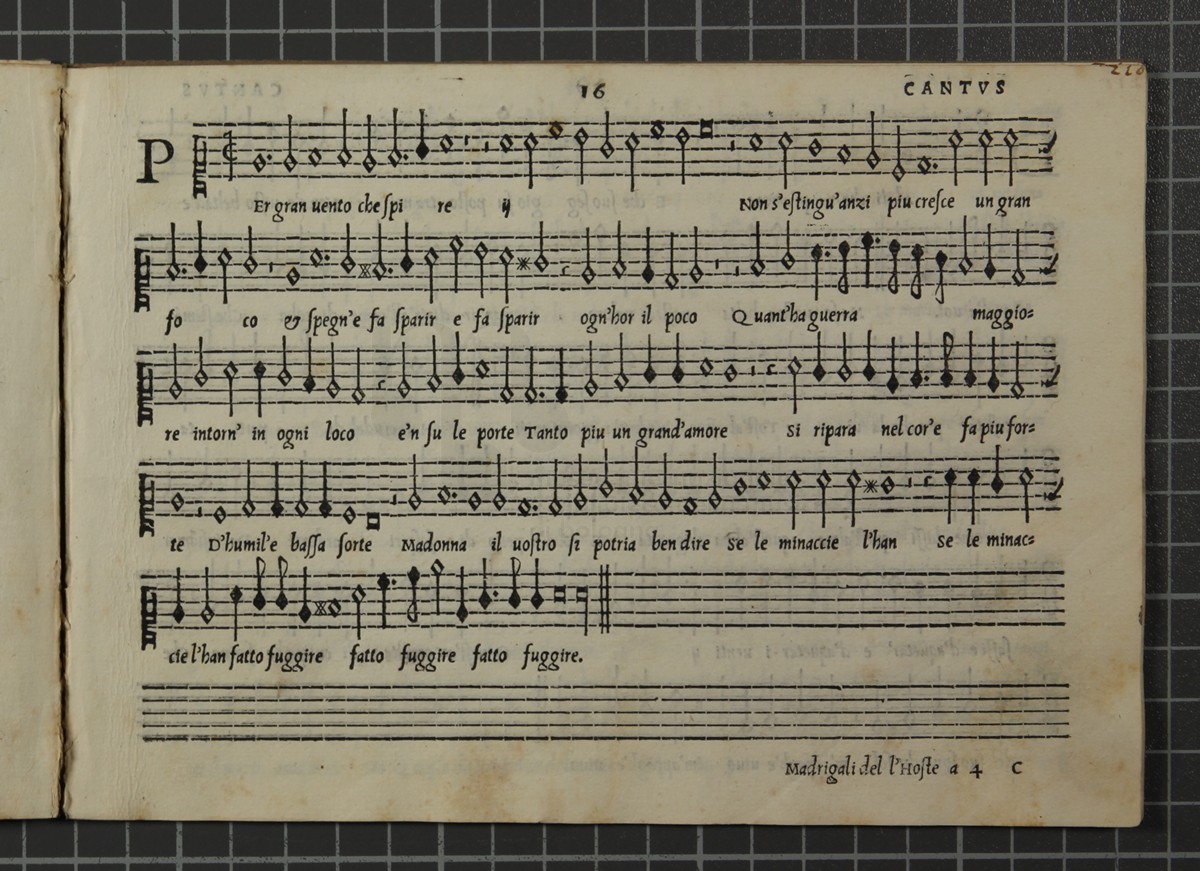 210
16 CANTVS
P
Er gran uento che ſpi re ij Non s'eſtingu'anzi piu creſce un gran
fo co & ſpegn'e fa ſparir e fa ſparir ogn'hor il poco Quant'ha guerra maggio=
re intorn' in ogni loco e'n ſu le porte Tanto piu un grand'amore si ripara nel cor'e fa piu for=
te D'humil'e baſſa ſorte Madonna il uoſtro ſi potria ben dire se le minaccie l'han se le minac=
cie l'han fatto fuggire fatto fuggire fatto fuggire.
Madrigali del l'Hoſte a 4 C